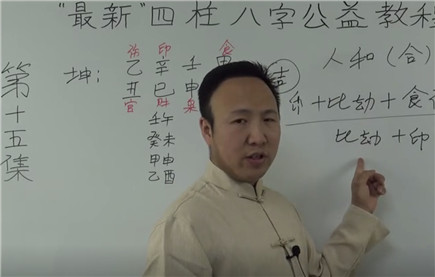 "最新"四柱八字公益教程
第十五集
伤 印 食
坤: 乙 辛 壬
丑 巳 申
官 枭
壬午
癸未
甲申
乙酉
吉
人和(合)
+比劫+食
比劫+印